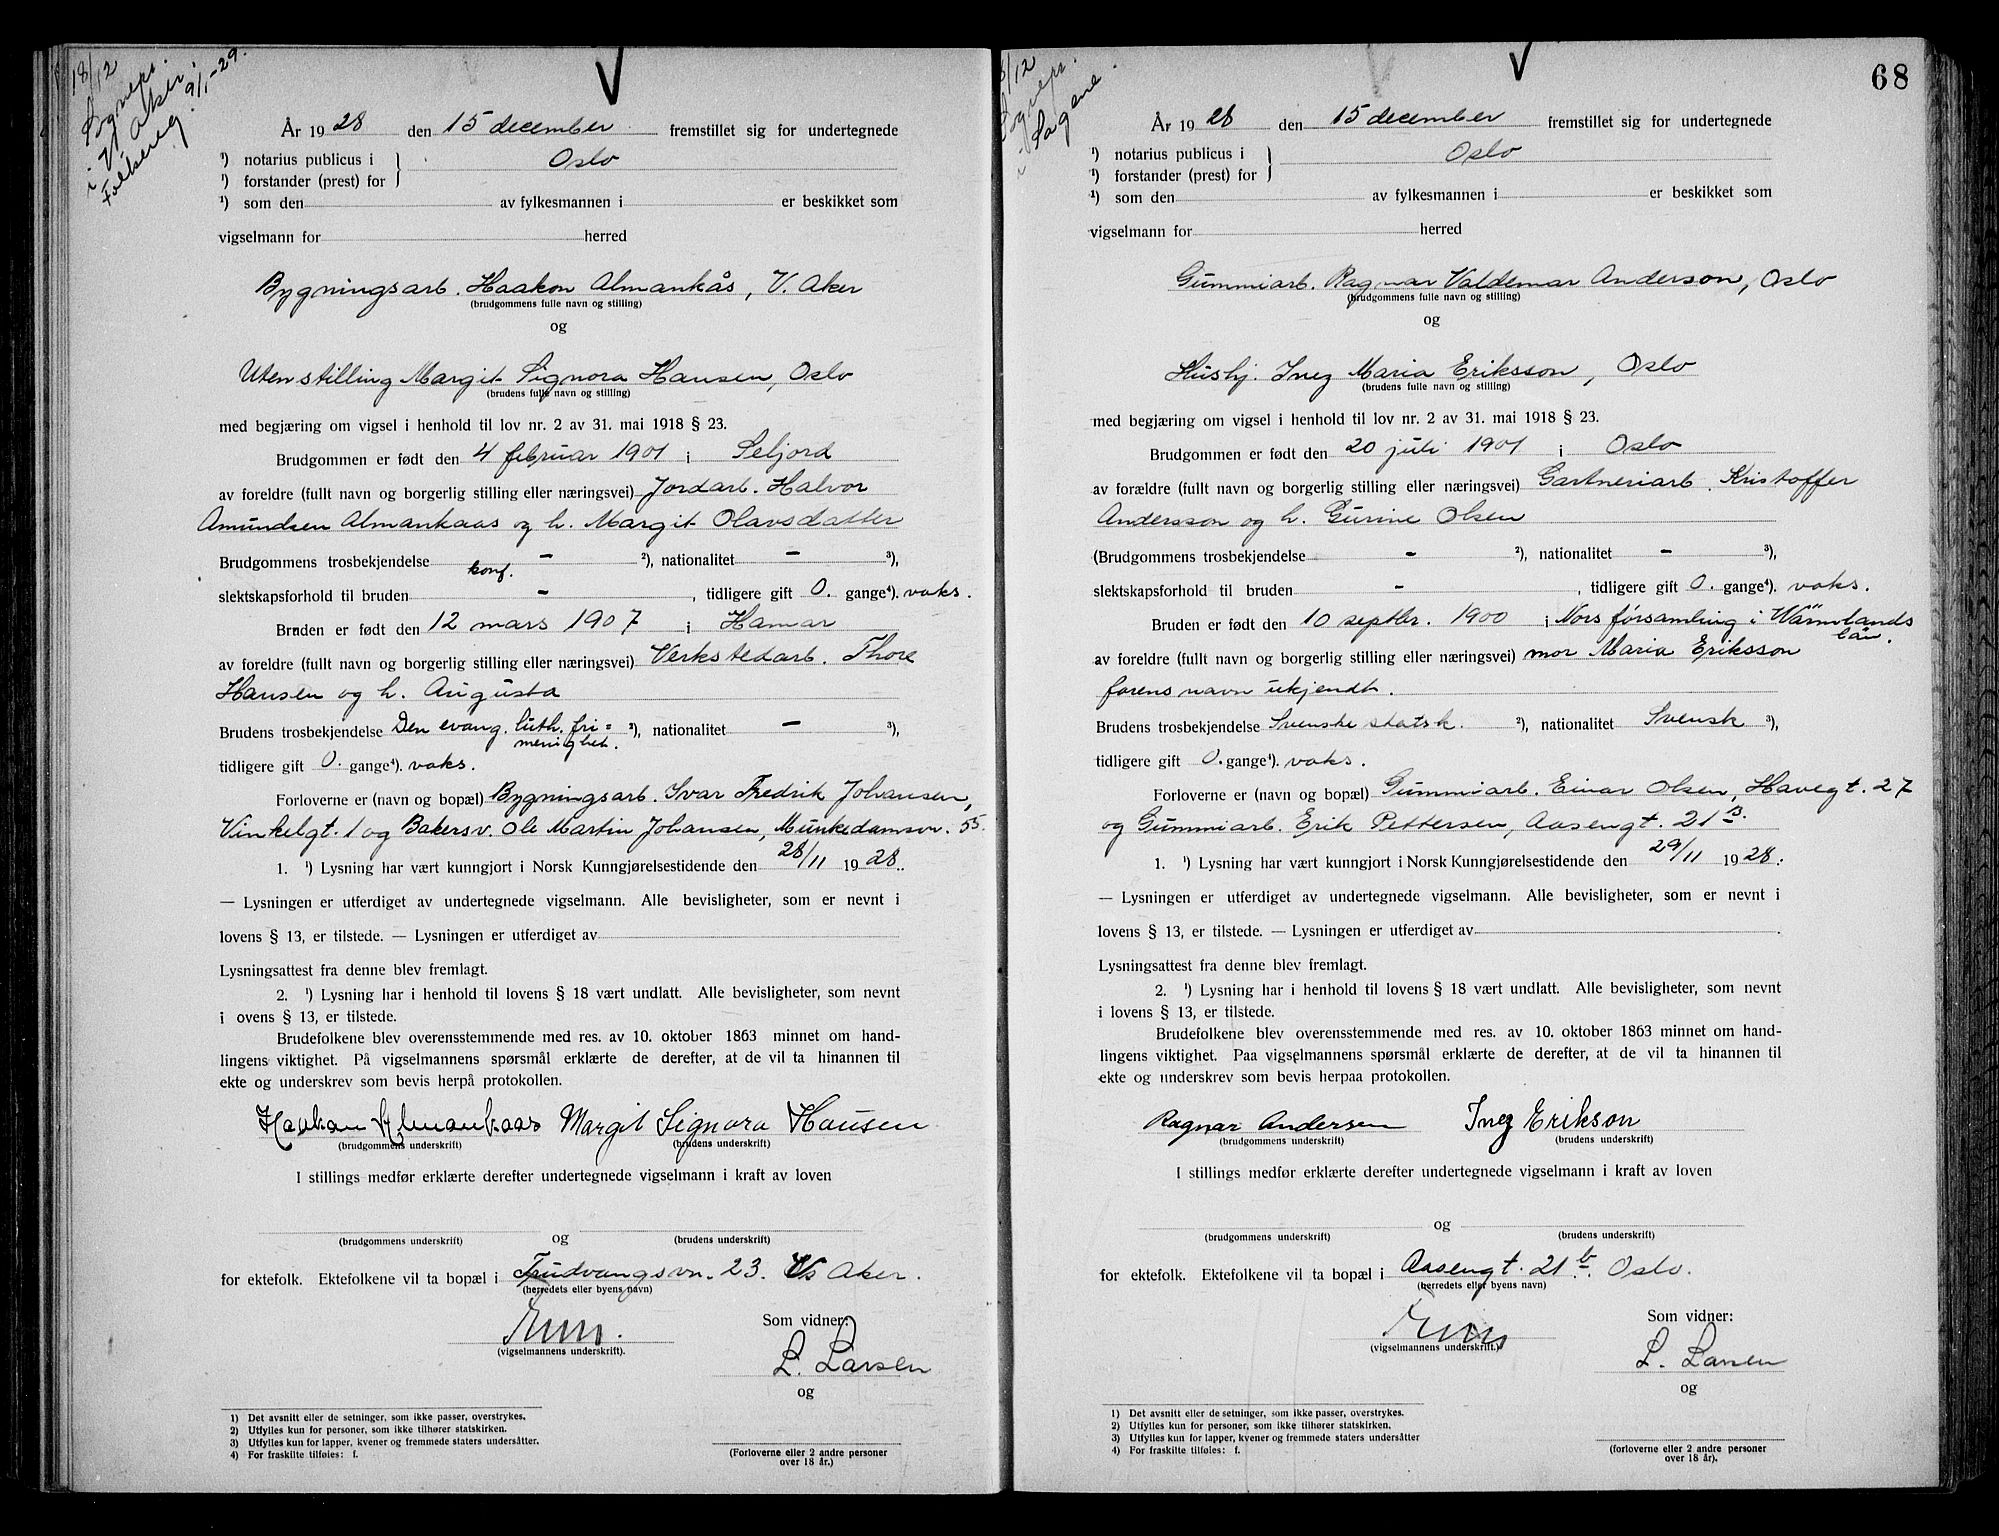 18/12
Sognepr.
i V. Aker.
Folkereg. 9/1-29.
År 1928 den 15 december fremstillet sig for undertegnede
¹) notarius publicus i } Oslo
¹) forstander (prest) for
¹) som den av fylkesmannen i er beskikket som
vigselmann for herred
Bygningsarb. Haakon Almankås, V. Aker
(brudgommens fulle navn og stilling)
og
Uten stilling Margit Signora Hansen, Oslo
(brudens fulle navn og stilling)
med begjæring om vigsel i henhold til lov nr. 2 av 31. mai 1918 § 23.
Brudgommen er født den 4 februar 1901 i Seljord
av foreldre (fullt navn og borgerlig stilling eller næringsvei) Jordarb. Halvor
Amundsen Almankaas og h. Margit Olavsdatter
Brudgommens trosbekjendelse - ²), nationalitet - ³),
konf.
slektskapsforhold til bruden - , tidligere gift 0. gange⁴). vaks.
Bruden er født den 12 mars 1907 i Hamar
av foreldre (fullt navn og borgerlig stilling eller næringsvei) Verkstedarb. Thore
Hansen og h. Augusta
Brudens trosbekjendelse Den evang. luth. fri= ²), nationalitet - ³),
menighet.
tidligere gift 0. gange⁴). vaks.
Forloverne er (navn og bopæl) Bygningsarb. Ivar Fredrik Johansen,
Vinkelgt. 1 og Bakersv. Ole Martin Johansen, Munkedamsv. 55.
1. ¹) Lysning har vært kunngjort i Norsk Kunngjørelsestidende den 28/11 1928.
— Lysningen er utferdiget av undertegnede vigselmann. Alle bevisligheter, som er nevnt i
lovens § 13, er tilstede. — Lysningen er utferdiget av
Lysningsattest fra denne blev fremlagt.
2. ¹) Lysning har i henhold til lovens § 18 vært undlatt. Alle bevisligheter, som nevnt
i ovens § 13, er tilstede.
Brudefolkene blev overensstemmende med res. av 10. oktober 1863 minnet om hand-
lingens viktighet. På vigselmannens spørsmål erklærte de derefter, at de vil ta hinannen til
ekte og underskrev som bevis herpå protokollen.
Haakon Almankaas Margit Signora Hansen
(brudgommens underskrift) (brudens underskrift)
I stillings medfør erklærte derefter undertegnede vigselmann i kraft av loven
og
(brudgommens underskrift) (brudens underskrift)
for ektefolk. Ektefolkene vil ta bopæl i Trudvangsvn. 23. Vs Aker.
(herredets eller byens navn)
Som vidner:
(vigselmannens underskrift).
L. Larsen
og
1) Det avsnitt eller de setninger, som ikke passer, overstrykes.
2) Utfylles kun for personer, som ikke tilhører statskirken.
3) Utfylles kun for lapper, kvener og fremmede staters undersåtter.
4) For fraskilte tilføies: f.
(Forloverne eller 2 andre personer
over 18 år.)
68
/12
Sognepr.
i Sagene.
År 1928 den 15 december fremstillet sig for undertegnede
¹) notarius publicus i } Oslo
¹) forstander (prest) for
¹) som den av fylkesmannen i er beskikket som
vigselmann for herred
Gummiarb. Ragnar Valdemar Anderson, Oslo
(brudgommens fulle navn og stilling)
og
Hushj. Inez Maria Eriksson, Oslo
(brudens fulle navn og stilling)
med begjæring om vigsel i henhold til lov nr. 2 av 31. mai 1918 § 23.
Brudgommen er født den 20 juli 1901 i Oslo
av forældre (fullt navn og borgerlig stilling eller næringsvei) Gartneriarb. Kristoffer
Andersson og h. Gurine Olsen
(Brudgommens trosbekjendelse - ²), nationalitet - ³),
slektskapsforhold til bruden - , tidligere gift 0. gange⁴). vaks.
Bruden er født den 10 septbr. 1900 i Nors församling i Wärmlands
län.
av foreldre (fullt navn og borgerlig stilling eller næringsvei) mor Maria Eriksson
farens navn ukjendt.
Brudens trosbekjendelse Svenske statsk. ²), nationalitet Svensk ³),
tidligere gift 0. gange⁴). vaks.
Forloverne er (navn og bopæl) Gummiarb. Einar Olsen, Havegt. 27
og Gummiarb. Erik Pettersen, Aasengt. 21 B.
1. ¹) Lysning har vært kunngjort i Norsk Kunngjørelsestidende den 29/11 1928.
— Lysningen er utferdiget av undertegnede vigselmann. Alle bevisligheter, som er nevnt i
lovens § 13, er tilstede. — Lysningen er utferdiget av .
Lysningsattest fra denne blev fremlagt.
2. ¹) Lysning har i henhold til lovens § 18 vært undlatt. Alle bevisligheter, som nevnt
i lovens § 13, er tilstede.
Brudefolkene blev overensstemmende med res. av 10. oktober 1863 minnet om hand-
lingens viktighet. Paa vigselmannens spørsmål erklærte de derefter, at de vil ta hinannen til
ekte og underskrev som bevis herpaa protokollen.
Ragnar Andersen Inez Erikson
(brudgommens underskrift) (brudens underskrift)
I stillings medfør erklærte derefter undertegnede vigselmann i kraft av loven
og
(brudgommens underskrift) (brudens underskrift)
for ektefolk. Ektefolkene vil ta bopæl i Aasengt. 21 b. Oslo.
(herredets eller byens navn)
Som vidner:
(vigselmannens underskrift.)
L. Larsen
og
1) Det avsnitt eller de setninger, som ikke passer, overstrykes.
2) Utfylles kun for personer, som ikke tilhører statskirken.
3) Utfylles kun for lapper, kvener og fremmede staters undersåtter
4) For fraskilte tilføies: f.
(forloverne eller 2 andre personer
over 18 år).